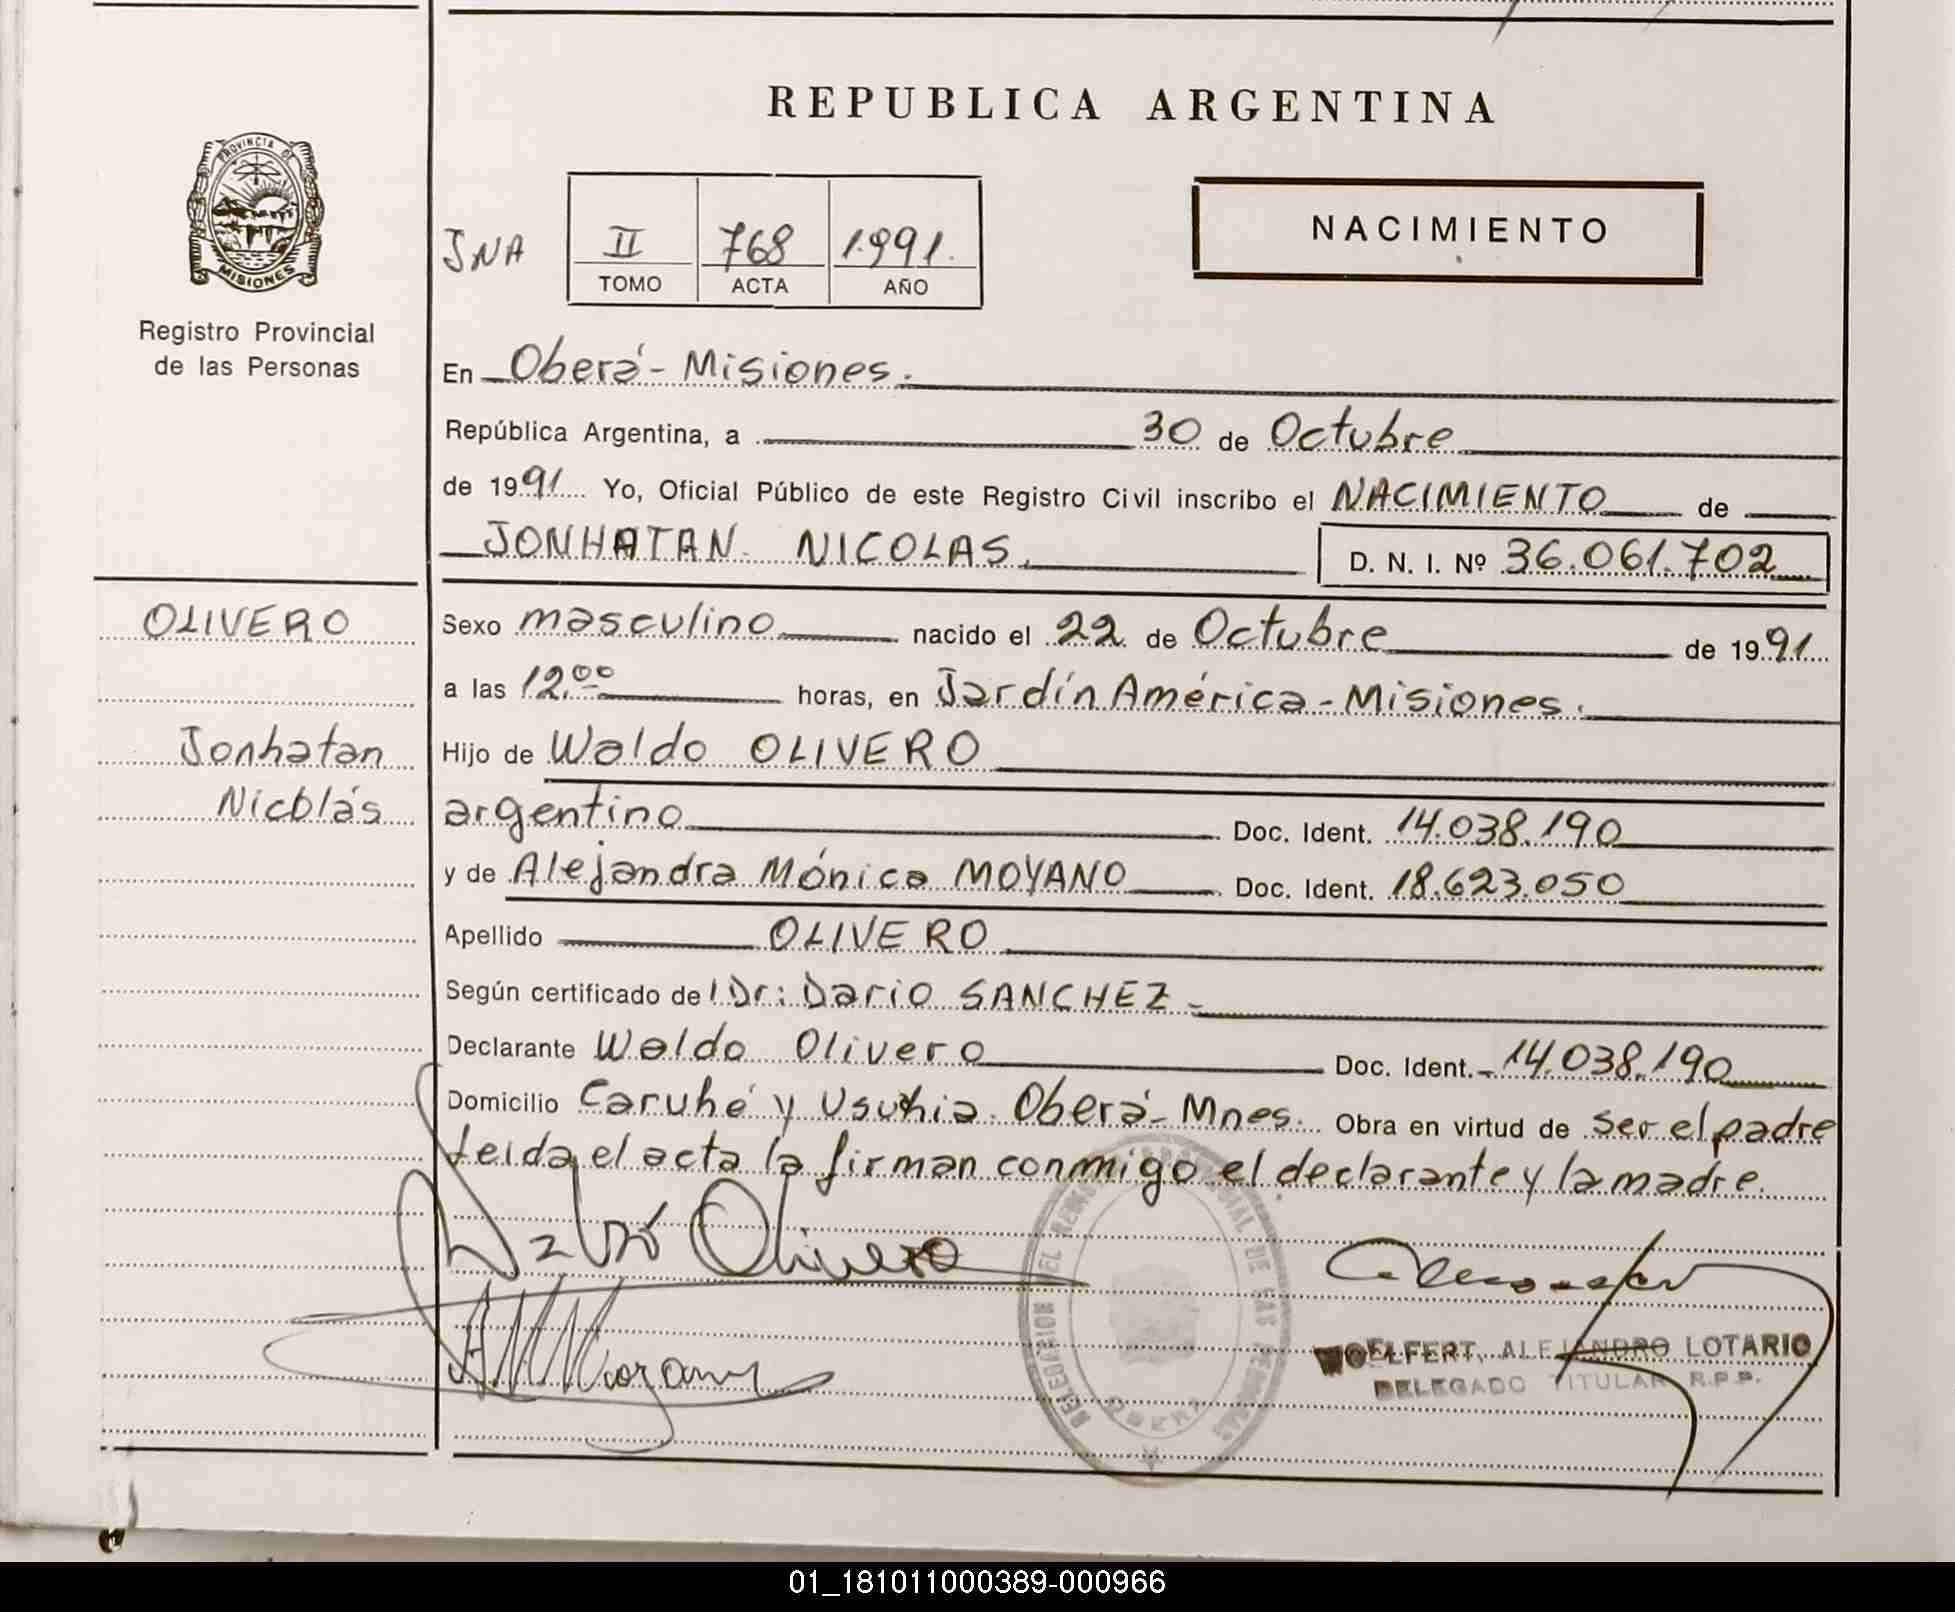 REPUBLICA ARGENTINA
PROVINCIA DE
MISIONES
Registro Provincial
de las Personas
JNA II 768 1.991.
TOMO ACTA AÑO
NACIMIENTO
En Oberá - Misiones.
República Argentina, a 30 de Octubre
de 1991 Yo, Oficial Público de este Registro Civil inscribo el NACIMIENTO de
JONHATAN NICOLAS. D. N. I. Nº 36.061.702
OLIVERO
Jonhatan
Nicolás
Sexo masculino nacido el 22 de Octubre de 1991
a las 12.00 horas, en Jardín América - Misiones.
Hijo de Waldo OLIVERO
argentino Doc. Ident. 14.038.190
y de Alejandra Mónica MOYANO Doc. Ident. 18.623.050
Apellido OLIVERO
Según certificado de l Dr: Dario SANCHEZ -
Declarante Waldo Olivero Doc. Ident. - 14.038.190
Domicilio Caruhé y Usuhia. Oberá - Mnes. Obra en virtud de ser el padre
Leida el acta la firman conmigo el declarante y la madre.
Olivero
WOELFERT, ALEJANDRO LOTARIO
DELEGADO TITULAR R.P.P.
OBERA
01_181011000389-000966